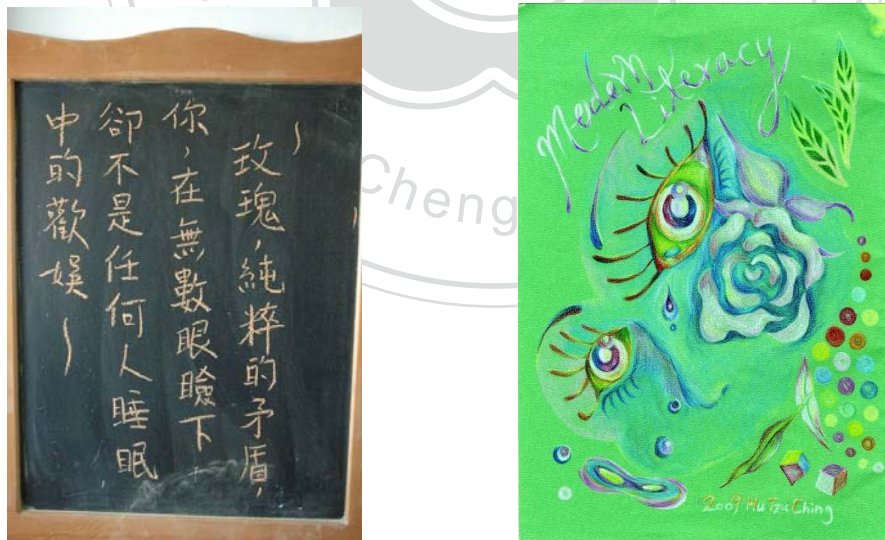 ～玫瑰，純粹的矛盾，
你，在無數眼瞼下
卻不是任何人睡眠
中的歡娛～
Chengch
Modern
Literacy
2009 Hu Tzu Ching